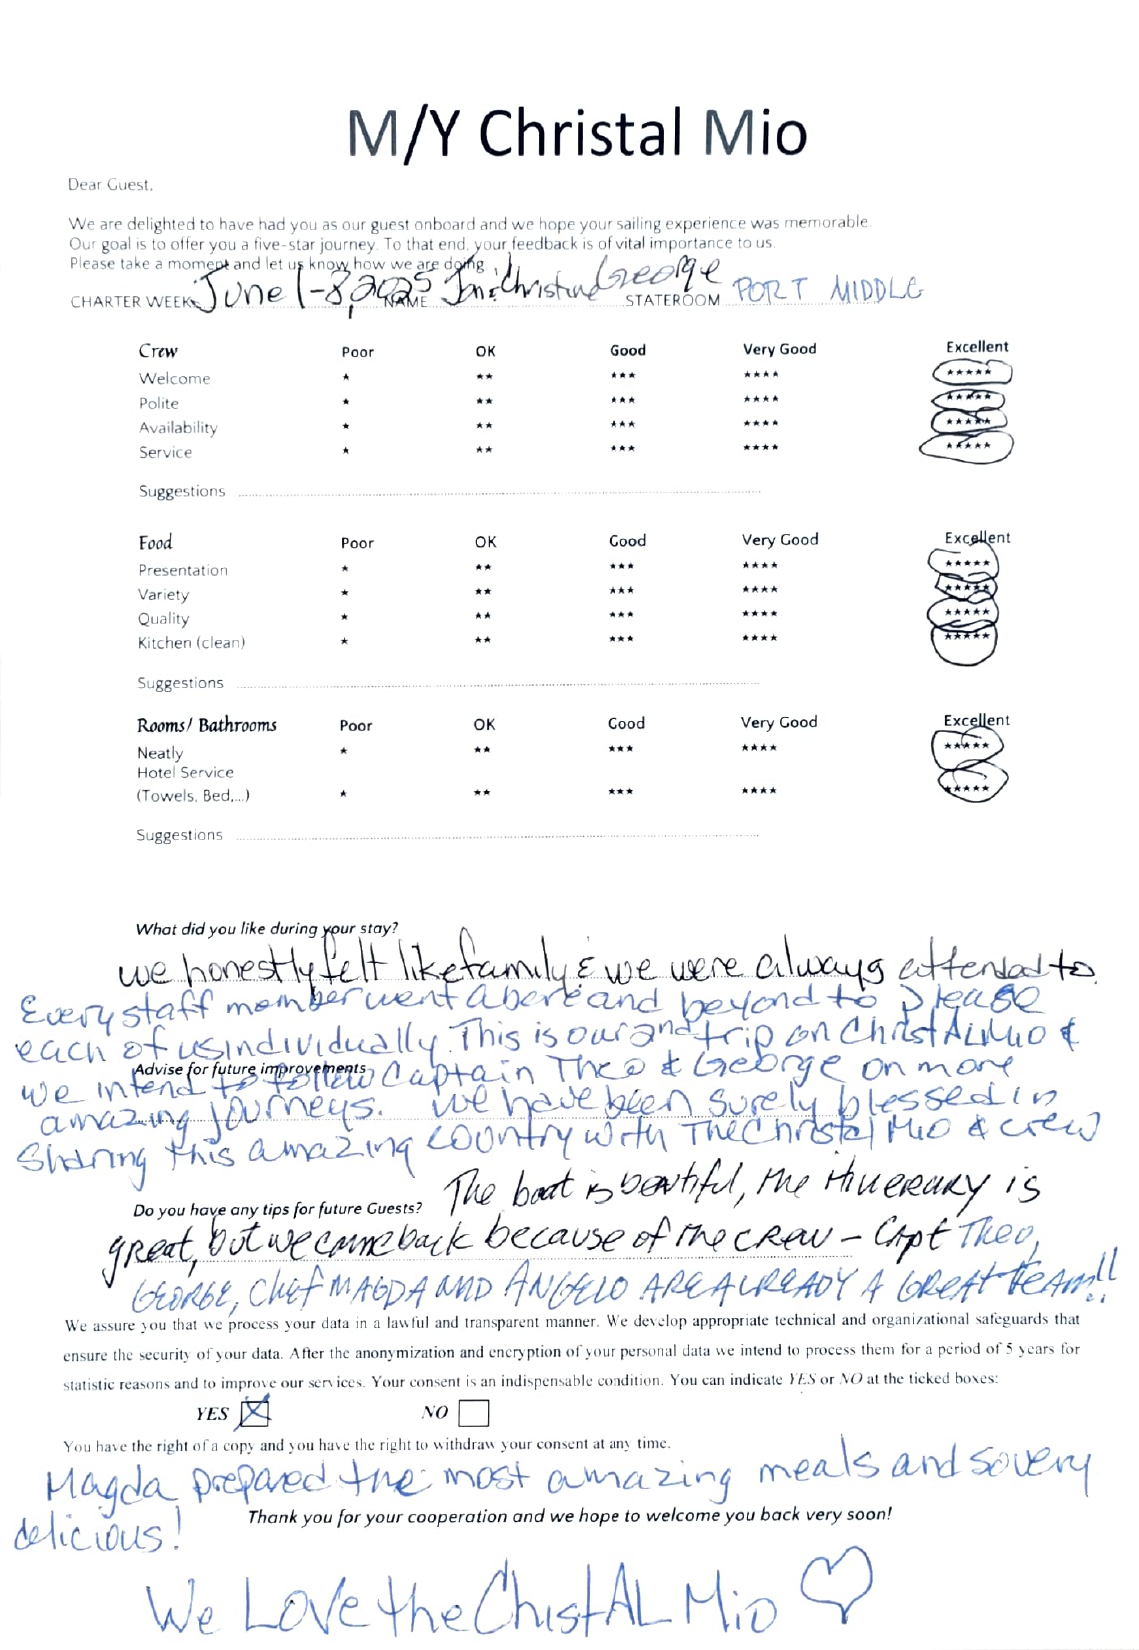 M/Y Christal Mio
Dear Guest,
We are delighted to have had you as our guest onboard and we hope your sailing experience was memorable.
Our goal is to offer you a five-star journey. To that end, your feedback is of vital importance to us.
Please take a moment and let us know how we are doing
CHARTER WEEK June 1-8, 2025 NAME Jon & Christine George STATEROOM PORT MIDDLE
Crew Poor OK Good Very Good Excellent
Welcome ★ ★★ ★★★ ★★★★ ★★★★★
Polite ★ ★★ ★★★ ★★★★ ★★★★★
Availability ★ ★★ ★★★ ★★★★ ★★★★★
Service ★ ★★ ★★★ ★★★★ ★★★★★
Suggestions
Food Poor OK Good Very Good Excellent
Presentation ★ ★★ ★★★ ★★★★ ★★★★★
Variety ★ ★★ ★★★ ★★★★ ★★★★★
Quality ★ ★★ ★★★ ★★★★ ★★★★★
Kitchen (clean) ★ ★★ ★★★ ★★★★ ★★★★★
Suggestions
Rooms/ Bathrooms Poor OK Good Very Good Excellent
Neatly ★ ★★ ★★★ ★★★★ ★★★★★
Hotel Service
(Towels, Bed,...) ★ ★★ ★★★ ★★★★ ★★★★★
Suggestions
What did you like during your stay?
we honestly felt like family & we were always attended to
Every staff member went above and beyond to please
each of us individually. This is our 2nd trip on ChristALMio &
Advise for future improvements
we intend to follow Captain Theo & George on more
amazing journeys. We have been surely blessed in
Sharing this amazing country with The Christal Mio & crew
Do you have any tips for future Guests? The boat is beautiful, the itinerary is
great, but we came back because of the crew – Capt Theo,
GEORGE, Chef MAGDA AND ANGELO ARE ALREADY A GREAT TEAM!!
We assure you that we process your data in a lawful and transparent manner. We develop appropriate technical and organizational safeguards that
ensure the security of your data. After the anonymization and encryption of your personal data we intend to process them for a period of 5 years for
statistic reasons and to improve our services. Your consent is an indispensable condition. You can indicate YES or NO at the ticked boxes:
YES NO
You have the right of a copy and you have the right to withdraw your consent at any time.
Magda prepared the most amazing meals and so very
delicious!
Thank you for your cooperation and we hope to welcome you back very soon!
We LOVE the ChistAL Mio